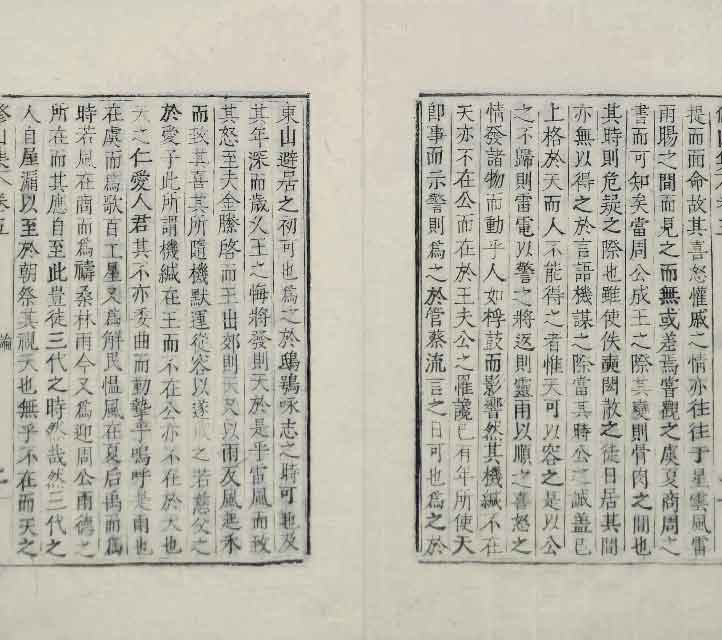 提而面命故其喜怒懽戚之情亦往往于星雲風雷
雨暘之間而見之而無或差焉嘗觀之虞夏商周之
書而可知矣當周公成王之際其變則骨肉之間也
其時則危疑之際也雖使佚奭閎散之徒日居其間
亦無以得之於言語機謀之際當其時公之誠蓋已
上格於天而人不能得之者惟天可以容之是以公
之不歸則雷電以警之將返則靈雨以順之喜怒之
情發諸物而動乎人如桴鼓而影響然其機緘不在
天亦不在公而在於王夫公之罹讒已有年所使天
卽事而示警則爲之於管蔡流言之日可也爲之於
東山避居之初可也爲之於鴟鴞咏志之時可也及
其年深而歲久王之悔將發則天於是乎雷風而致
其怒至夫金縢啓而王出郊則天又以雨反風起禾
而致其喜其所隨機默運從容以遂之若慈父之
於愛子此所謂機緘在王而不在公亦不在於天也
天之仁愛人君其不亦委曲而動摯乎嗚呼是雨也
在虞而爲歌百工星又爲解民慍風在夏后禹而爲
時若風在商而爲禱桑林雨今又爲迎周公雨德之
所在而其應自至此豈徒三代之時然哉然三代之
人自屋漏以至於朝祭其視天也無乎不在而天之
山集卷五
論